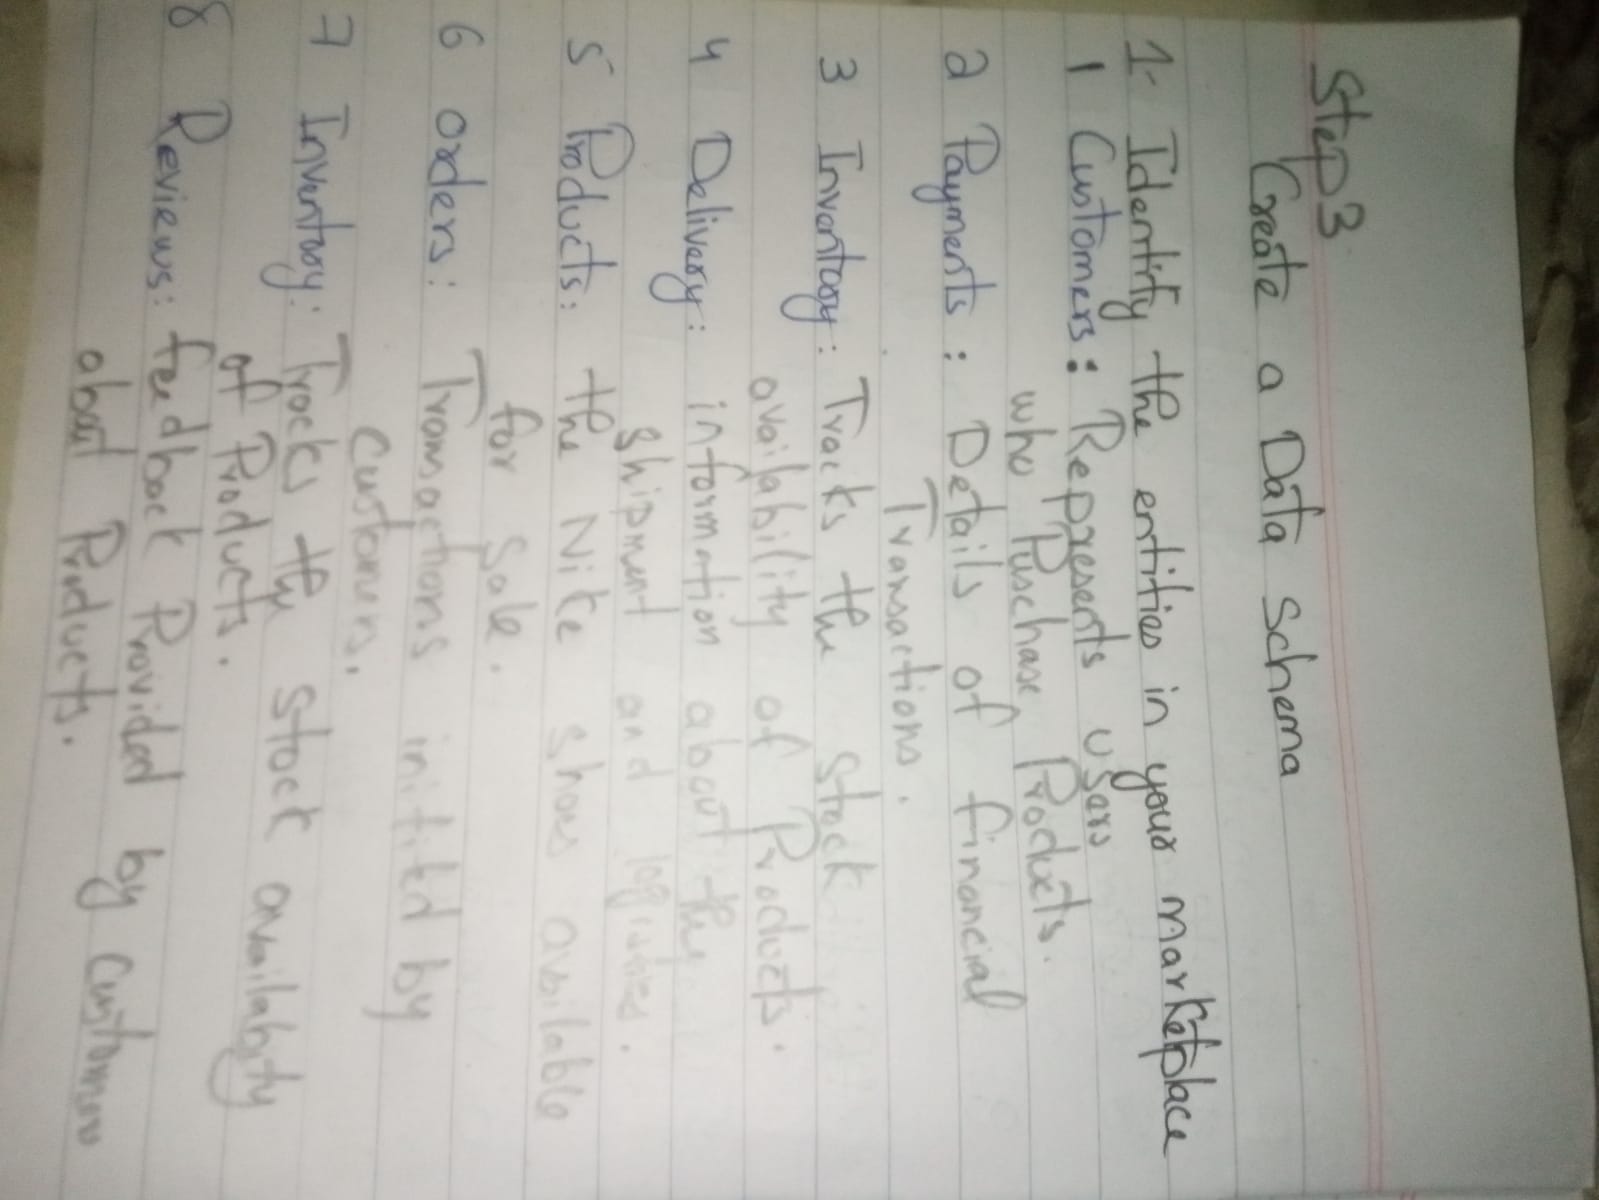 Step 3
Create a Data Schema
1- Identify the entities in your marketplace
1 Customers: Represents users
who Puschase Products.
2 Payments: Details of financial
Transactions.
3 Inventory: Tracks the Stock
availability of Products.
4 Delivery: information about the
Shipment and logistics.
5 Products: the Nike shoes available
for sale.
6 orders: Transactions initited by
Customers.
7 Inventory: Tracks the stock availability
of Products.
8 Reviews: feedback Provided by Customers
about Products.